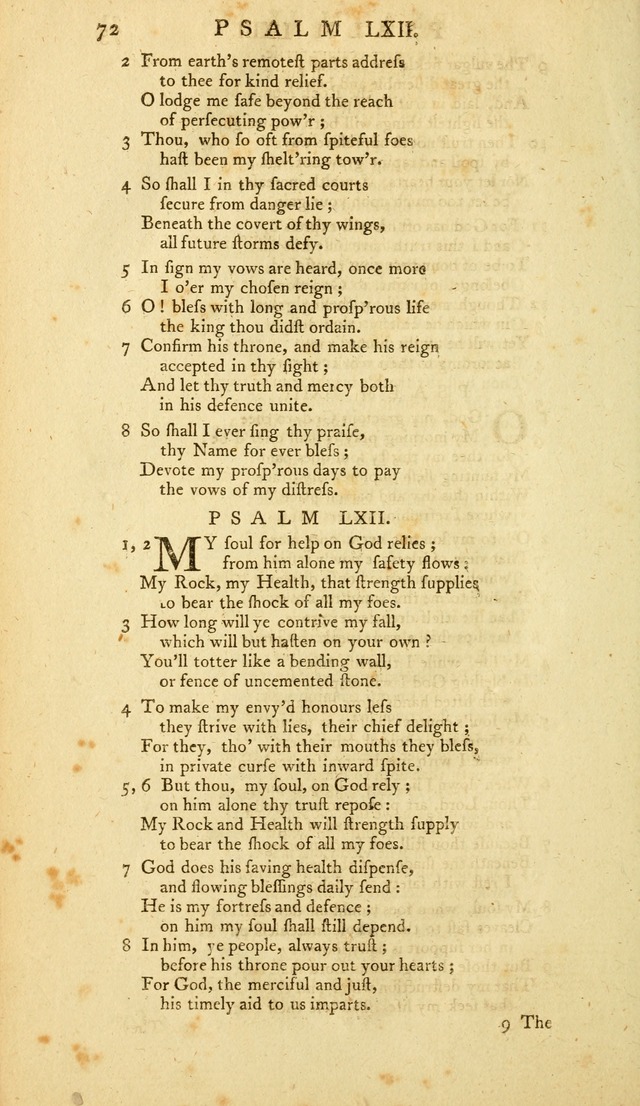 72 PSALM LXII.
2 From earth's remoteſt parts addreſs
to thee for kind relief.
O lodge me ſafe beyond the reach
of perſecuting pow'r ;
3 Thou, who ſo oft from ſpiteful foes
haſt been my ſhelt'ring tow'r.
4 So ſhall I in thy ſacred courts
ſecure from danger lie ;
Beneath the covert of thy wings,
all future ſtorms defy.
5 In ſign my vows are heard, once more
I o'er my choſen reign ;
6 O ! bleſs with long and proſp'rous life
the king thou didſt ordain.
7 Confirm his throne, and make his reign
accepted in thy ſight ;
And let thy truth and mercy both
in his defence unite.
8 So ſhall I ever ſing thy praiſe,
thy Name for ever bleſs ;
Devote my proſp'rous days to pay
the vows of my diſtreſs.
PSALM LXII.
1, 2 MY ſoul for help on God relies ;
from him alone my ſafety flows ;
My Rock, my Health, that ſtrength ſupplies
to bear the ſhock of all my foes.
3 How long will ye contrive my fall,
which will but haſten on your own ?
You'll totter like a bending wall,
or fence of uncemented ſtone.
4 To make my envy'd honours leſs
they ſtrive with lies, their chief delight ;
For they, tho' with their mouths they bleſs,
in private curſe with inward ſpite.
5, 6 But thou, my ſoul, on God rely ;
on him alone thy truſt repoſe :
My Rock and Health will ſtrength ſupply
to bear the ſhock of all my foes.
7 God does his ſaving health diſpenſe,
and flowing bleſſings daily ſend :
He is my fortreſs and defence ;
on him my ſoul ſhall ſtill depend.
8 In him, ye people, always truſt ;
before his throne pour out your hearts ;
For God, the merciful and juſt,
his timely aid to us imparts.
9 The